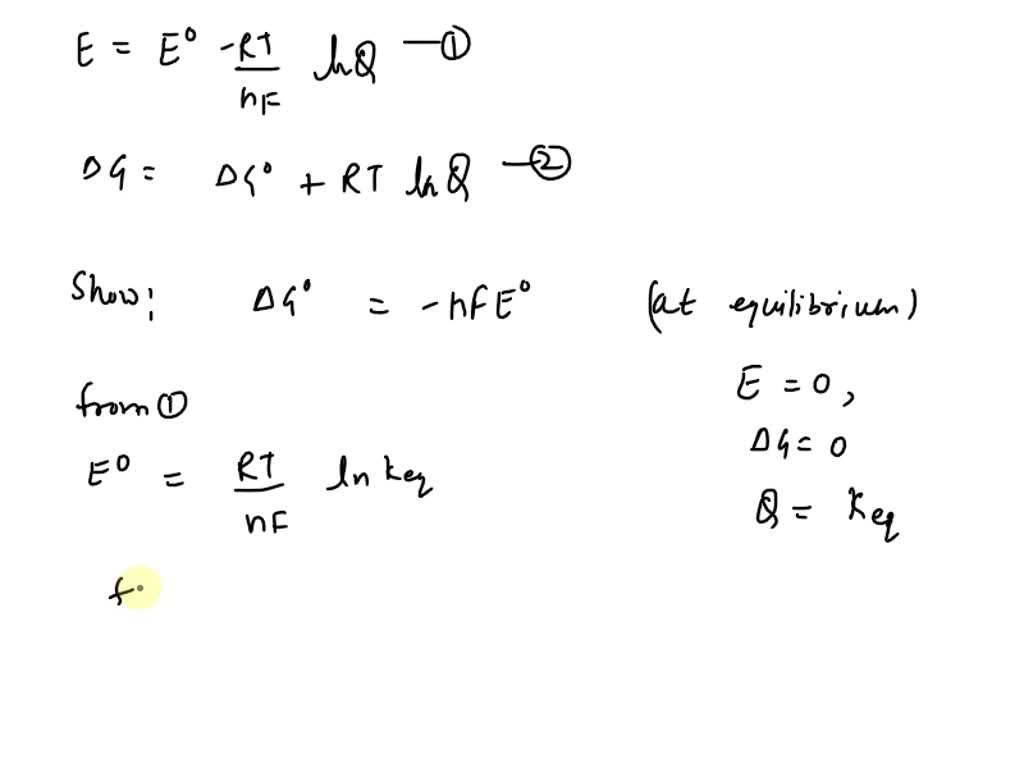 E = E⁰ - RT/nF ln Q — ①
ΔG = ΔG⁰ + RT ln Q — ②
Show: ΔG⁰ = - nFE⁰ (at equilibrium)
E = 0,
from ①
ΔG = 0
E⁰ = RT/nF ln Keq
Q = Keq
f